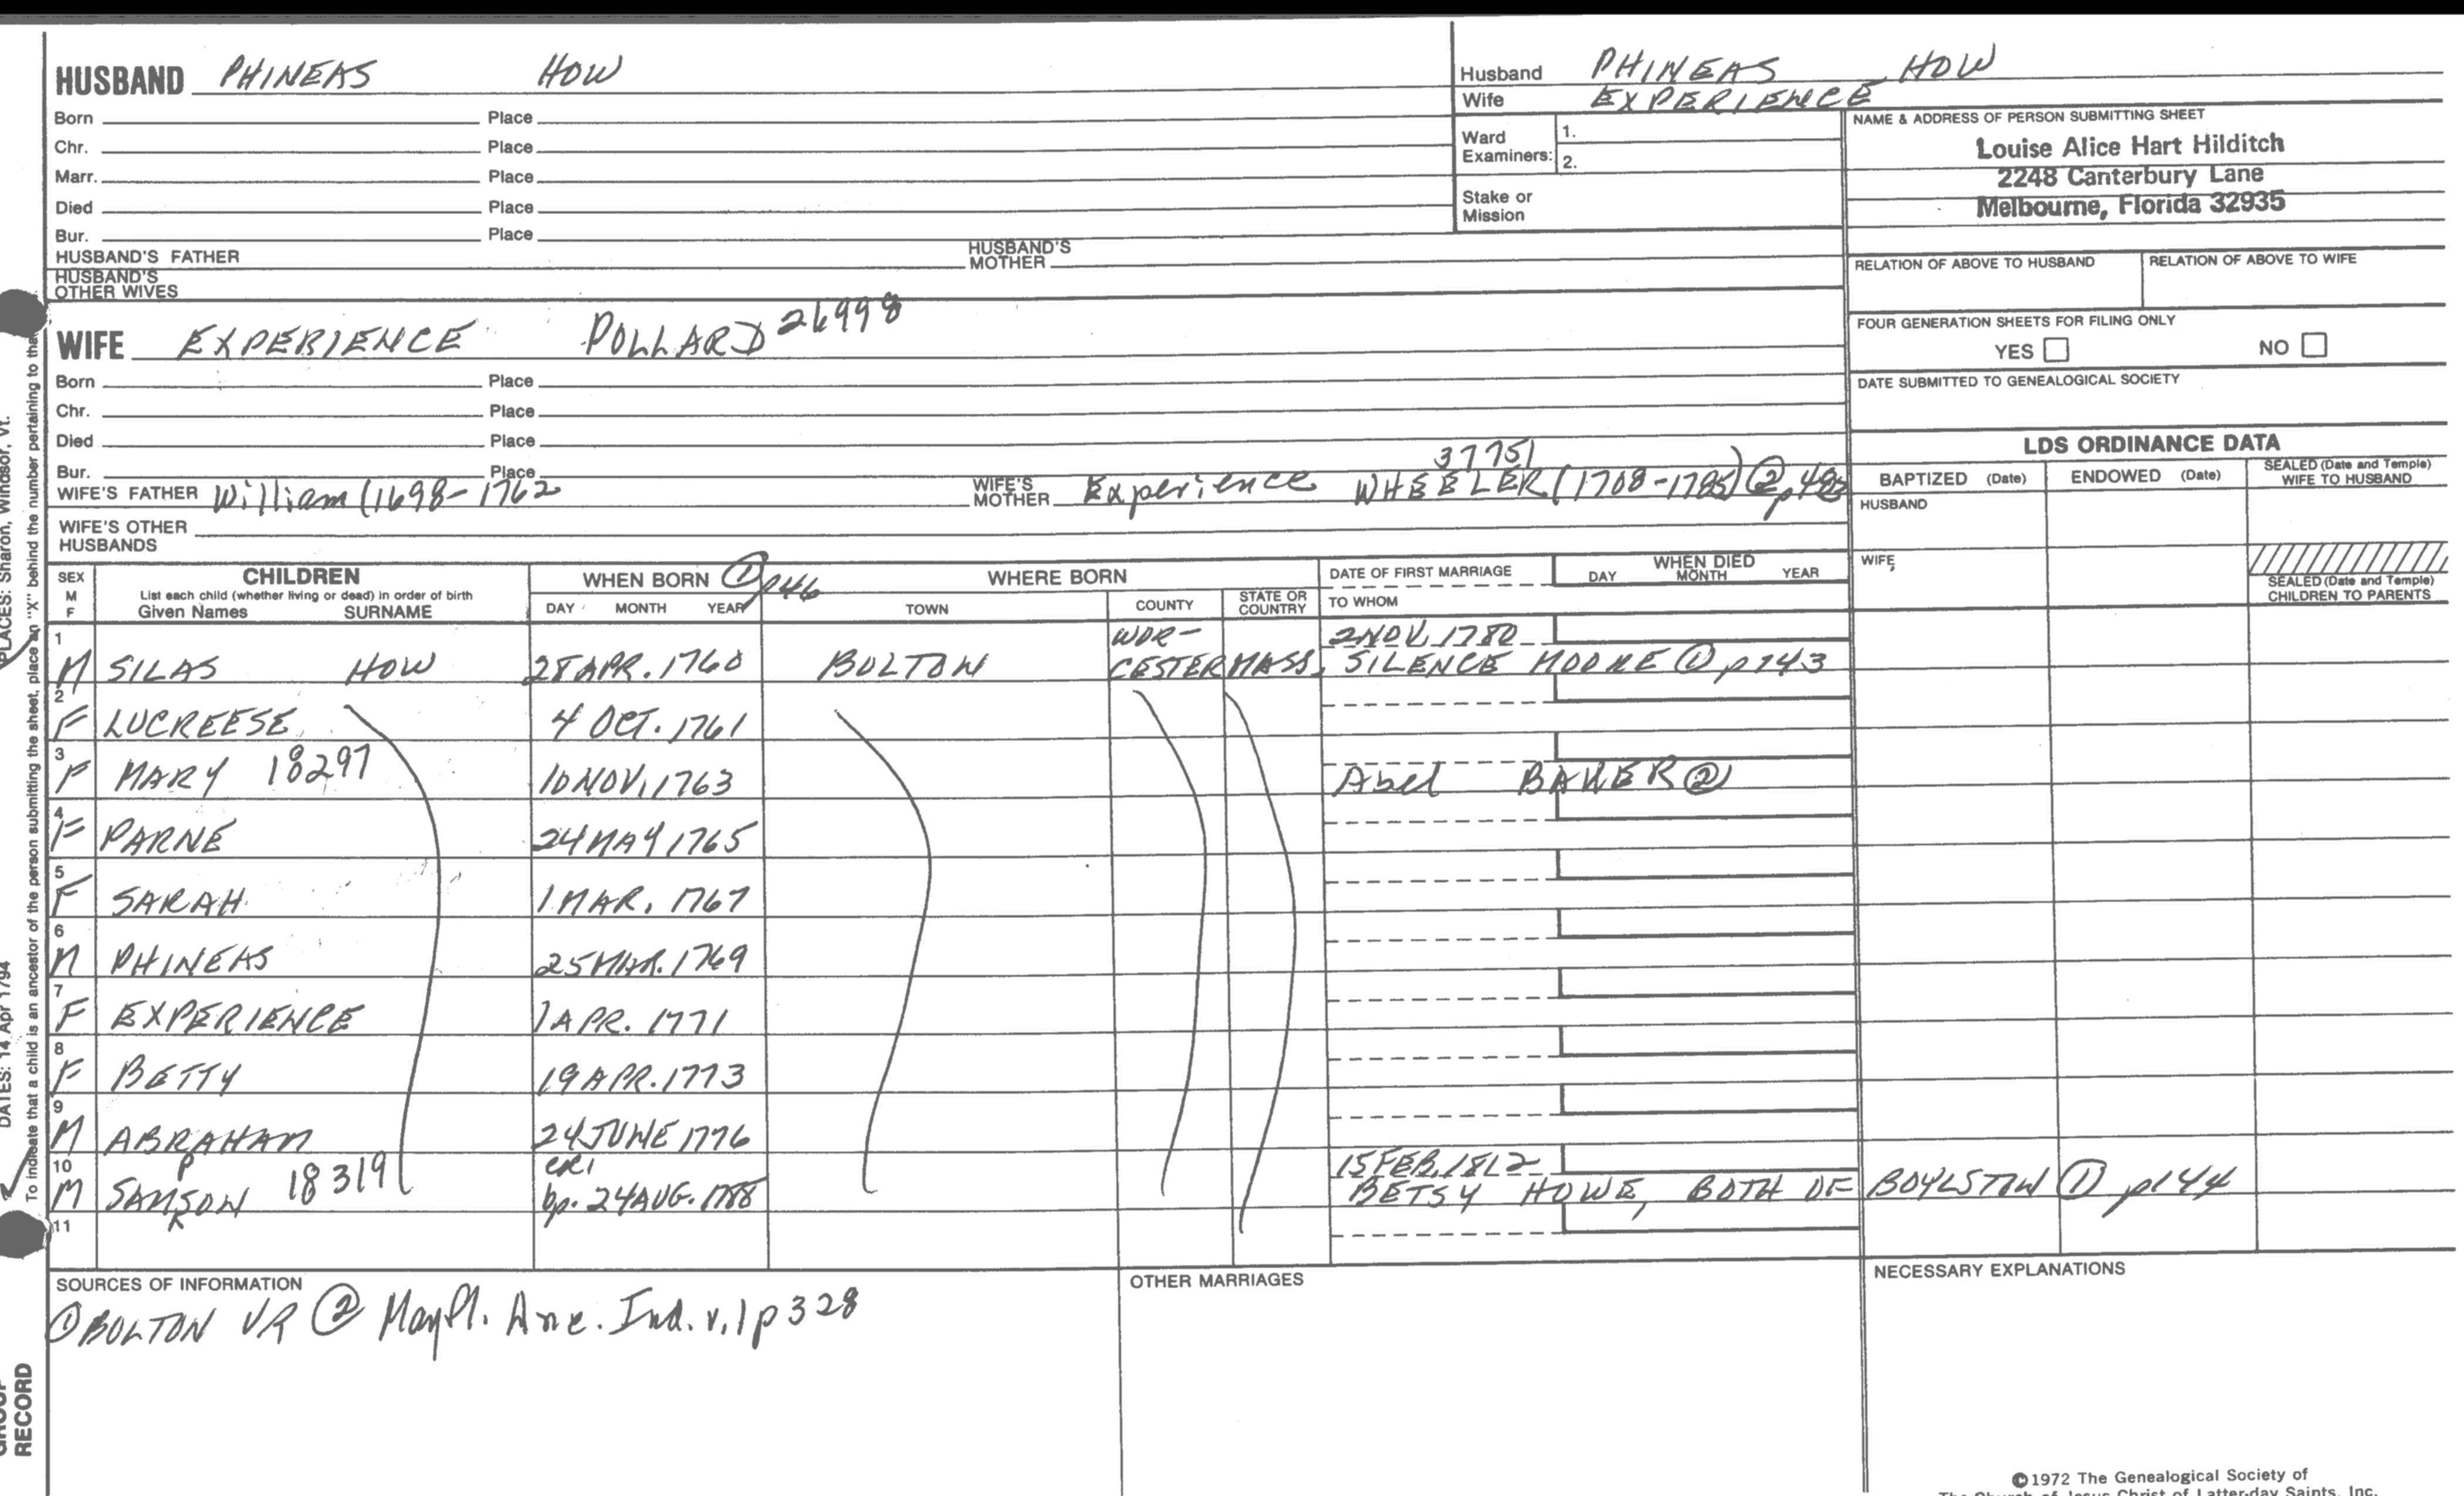 HUSBAND PHINEAS HOW
Born Place
Chr. Place
Marr. Place
Died Place
Bur. Place
HUSBAND'S FATHER HUSBAND'S MOTHER
HUSBAND'S OTHER WIVES
Husband PHINEAS HOW
Wife EXPERIENCE
Ward Examiners: 1.
2.
Stake or Mission
NAME & ADDRESS OF PERSON SUBMITTING SHEET
Louise Alice Hart Hilditch
2248 Canterbury Lane
Melbourne, Florida 32935
RELATION OF ABOVE TO HUSBAND RELATION OF ABOVE TO WIFE
FOUR GENERATION SHEETS FOR FILING ONLY
YES NO
DATE SUBMITTED TO GENEALOGICAL SOCIETY
WIFE EXPERIENCE POLLARD 26998
Born Place
Chr. Place
Died Place
Bur. Place
WIFE'S FATHER William (1698-1762 WIFE'S MOTHER Experience 37751 WHEELER (1708-1785) ②
WIFE'S OTHER HUSBANDS
LDS ORDINANCE DATA
BAPTIZED (Date) ENDOWED (Date) SEALED (Date and Temple) WIFE TO HUSBAND
HUSBAND
WIFE
SEALED (Date and Temple) CHILDREN TO PARENTS
SEX M F
CHILDREN
List each child (whether living or dead) in order of birth
Given Names SURNAME
WHEN BORN ① p46
DAY MONTH YEAR
WHERE BORN
TOWN COUNTY STATE OR COUNTRY
DATE OF FIRST MARRIAGE
TO WHOM
WHEN DIED
DAY MONTH YEAR
1 WOR- 2 NOV. 1780
M SILAS HOW 28 APR. 1760 BOLTON CESTER MASS. SILENCE MOORE ① p143
2
F LUCREESE 4 OCT. 1761
3
F MARY 18297 10 NOV. 1763 Abel BAKER ②
4
F PARNE 24 MAY 1765
5
F SARAH 1 MAR. 1767
6
M PHINEAS 25 MAR. 1769
7
F EXPERIENCE 1 APR. 1771
8
F BETTY 19 APR. 1773
9
M ABRAHAM 24 JUNE 1776
10 P CR1 15 FEB. 1812
M SAMSON 18319 bp. 24 AUG. 1788 BETSY HOWE, BOTH OF BOYLSTON ① p144
11
SOURCES OF INFORMATION
① BOLTON VR ② Mayfl. Anc. Ind. v.1 p328
OTHER MARRIAGES
NECESSARY EXPLANATIONS
©1972 The Genealogical Society of
The Church of Jesus Christ of Latter-day Saints, Inc.
PLACES: Sharon, Windsor, Vt.
DATES: 14 Apr 1794
To indicate that a child is an ancestor of the person submitting the sheet, place an "X" behind the number pertaining to that
GROUP
RECORD